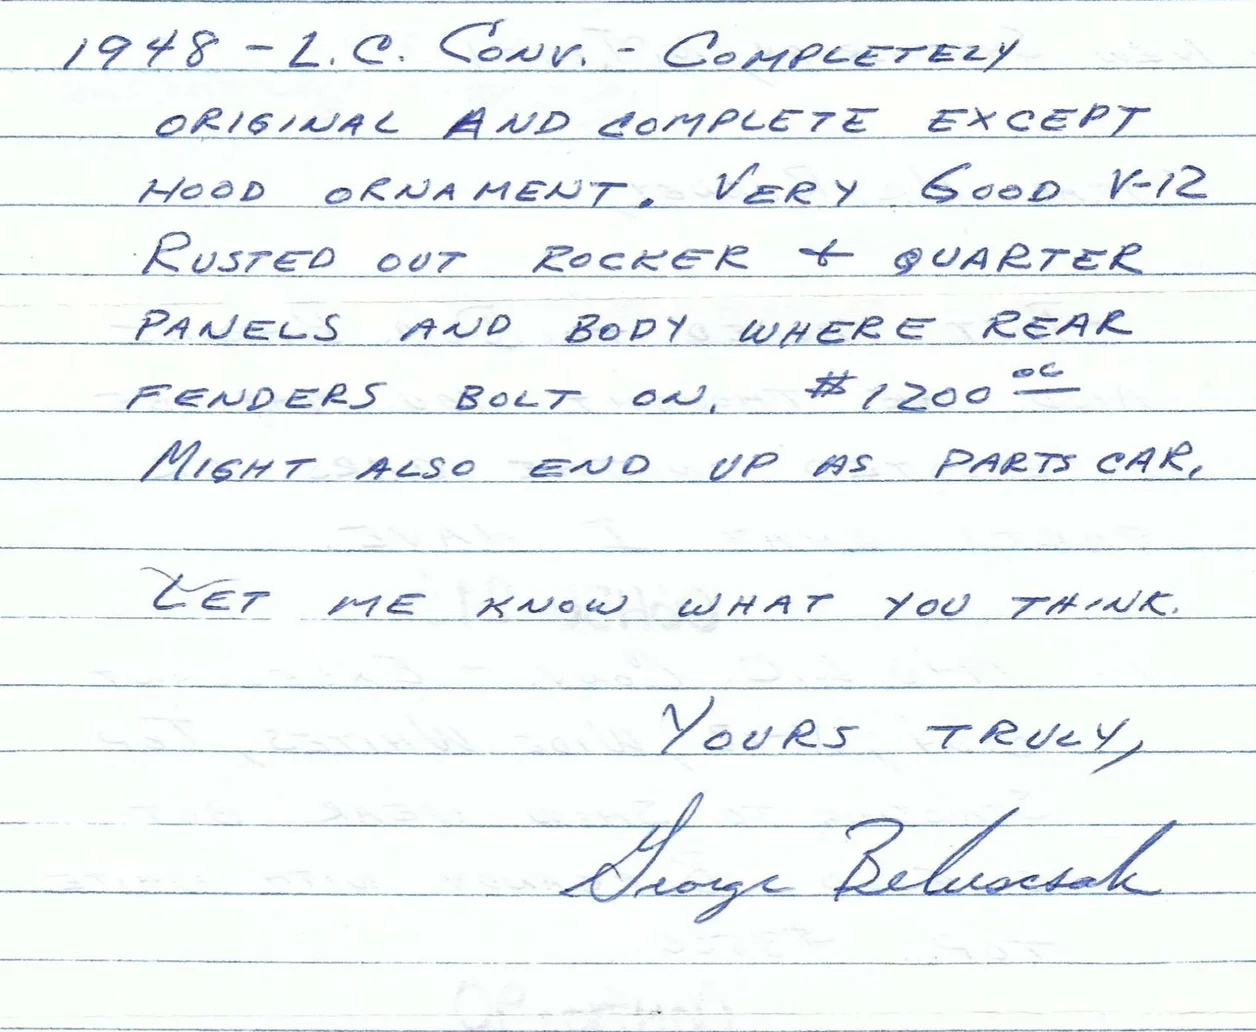 1948 - L.C. CONV. - COMPLETELY
ORIGINAL AND COMPLETE EXCEPT
HOOD ORNAMENT. VERY GOOD V-12
RUSTED OUT ROCKER & QUARTER
PANELS AND BODY WHERE REAR
FENDERS BOLT ON. $1200 00
MIGHT ALSO END UP AS PARTS CAR.
LET ME KNOW WHAT YOU THINK.
YOURS TRULY,
George